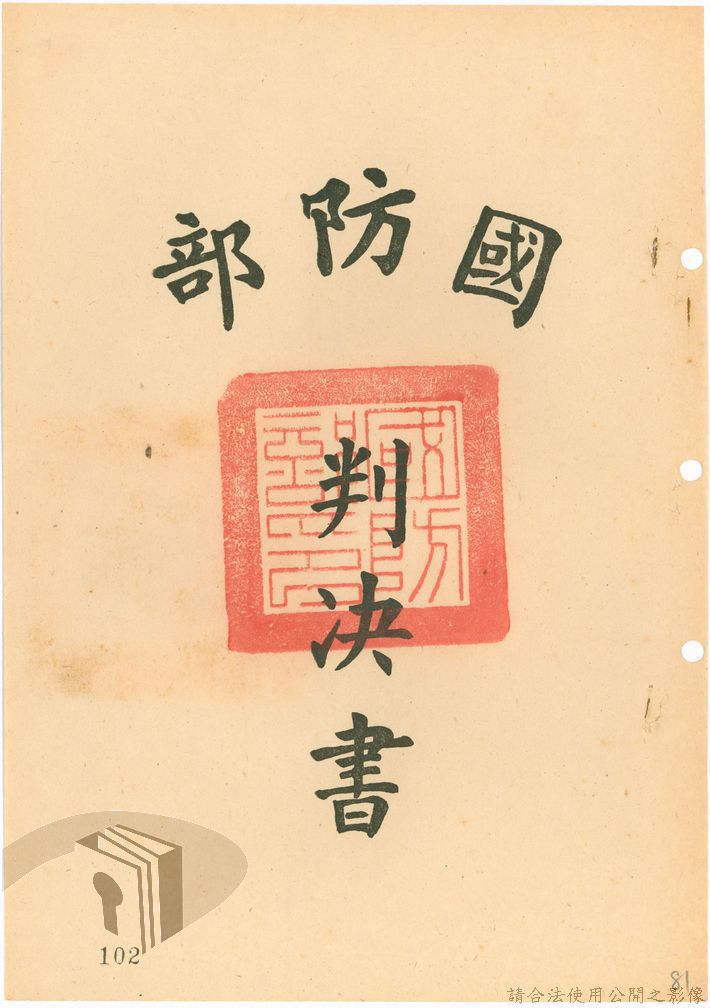 國防部
判決書
國防部印
102
81
請合法使用公開之影像